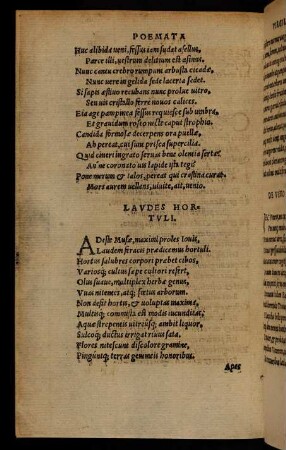 POEMATA
Huc alibida veni, fessus iam sudat asellus,
Parce illi, uestrum delitum est asinus.
Nunc cantu crebro rumpunt arbusta cicadæ,
Nunc uere in gelida sede lacerta sedet.
Si sapis æstiuo recubans nunc prolue uitro,
Seu uis crystallo ferre nouos calices.
Eia age pampinea fessus requiesce sub umbra,
Et grauidum roseo necte caput strophio.
Candida formosæ decerpens ora puellæ,
Ah pereat, cui sunt prisca supercilia.
Quid cineri ingrato seruas bene olentia serta?
An'ne coronato uis lapide ista tegi?
Pone merum & talos, pereat qui crastina curat.
Mors aurem uellens, uiuite, ait, uenio.
LAVDES HOR-
TVLI.
ADeste Musæ, maximi proles Ioui,
Laudem feracis prædicemus hortuli.
Hortus salubres corpori præbet cibos,
Variosq; cultus sæpe cultori refert,
Olus suaue, multiplex herbæ genus,
Vuas nitentes, atq; fœtus arborum.
Non desit hortis, & uoluptas maxima,
Multisq; commista est modis iucunditas:
Aquæ strepentis uitreusq; ambit liquor,
Sulcoq; ductus irrigat riuus sata.
Flores nitescunt discolore gramine,
Pinguntq; terras gemmeis honoribus.
Apes